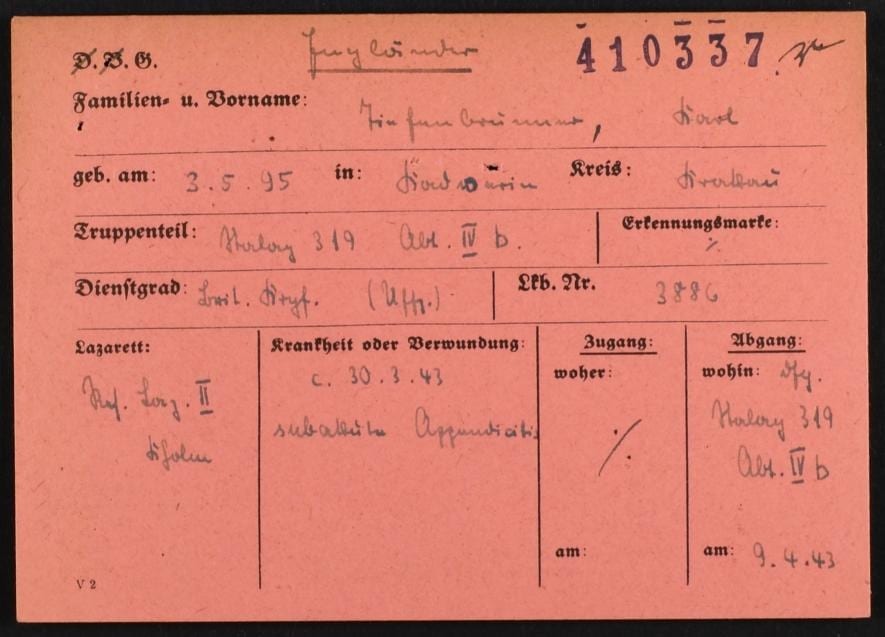 D. B. G. Engländer 410337
Familien- u. Vorname:
Tiefenbrunner, Karl
geb. am: 3.5.95 in: Kreis: Krakau
Truppenteil: Stalag 319 Abt. IV b. Erkennungsmarke: ./.
Dienstgrad: brit. Krgf. (Uffz.) Lkb. Nr. 3886
Lazarett: Krankheit oder Verwundung: Zugang: Abgang:
Res. Laz. II c. 30.3.43 woher: ./. wohin: dfg.
Cholm subakute Appendicitis Stalag 319
Abt. IV b
am: am: 9.4.43
V 2